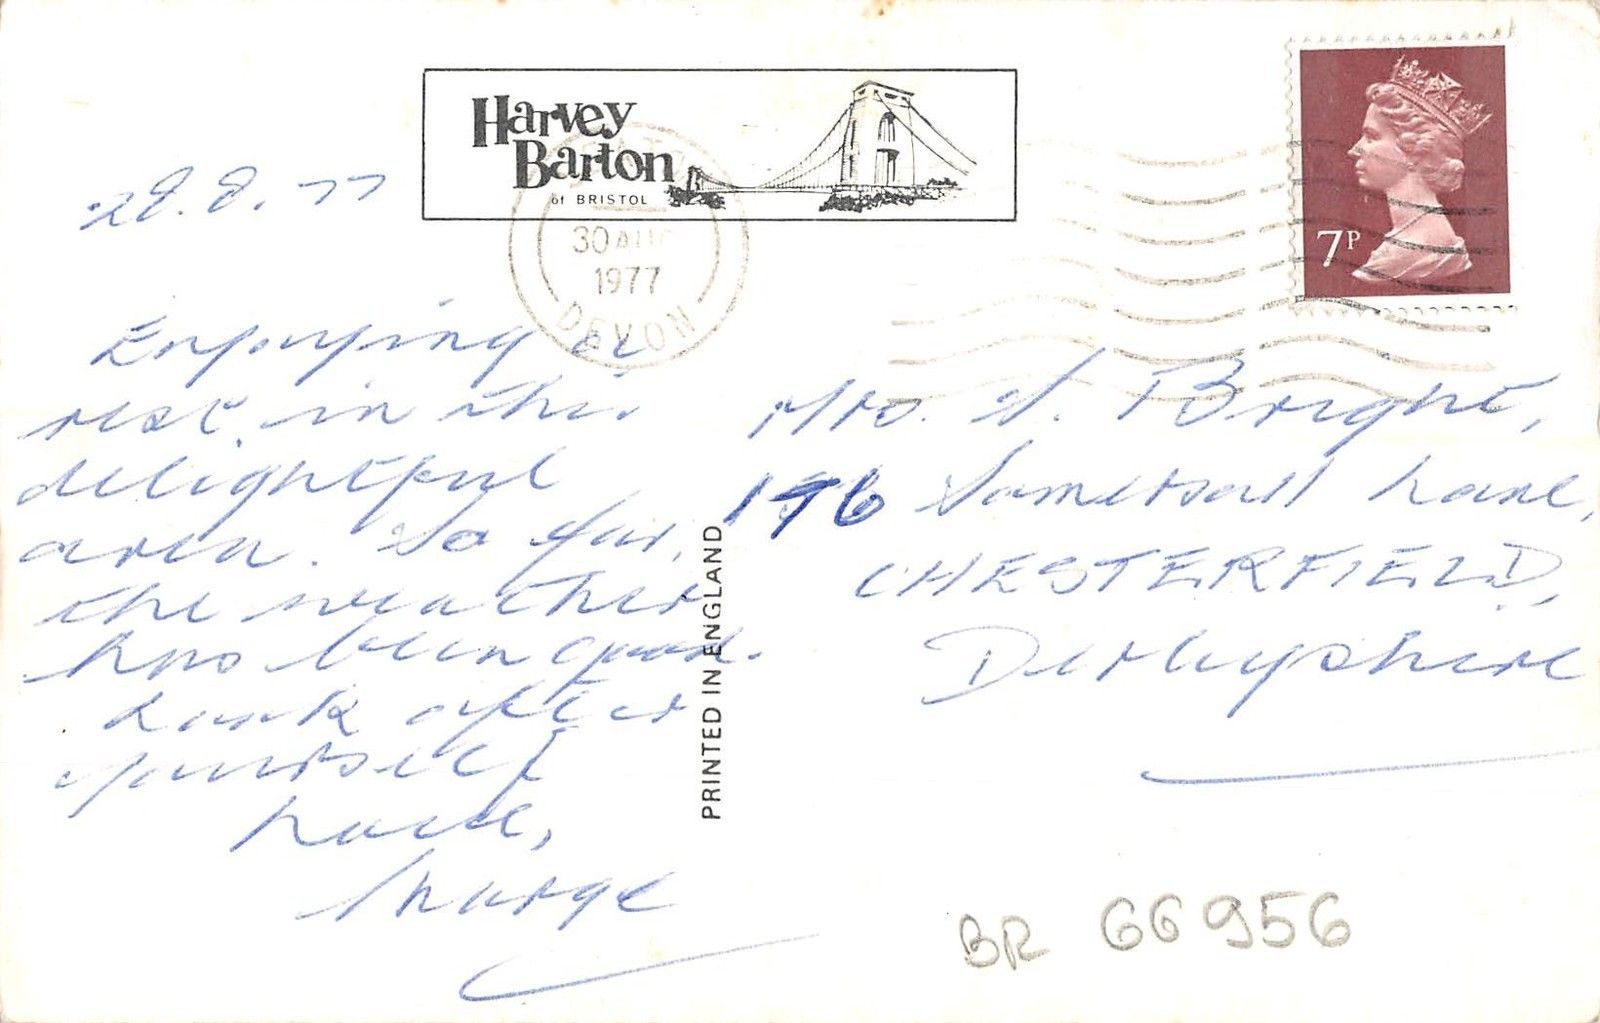 Harvey
Barton
of BRISTOL
30 AUG
1977
DEVON
7P
28.8.77
Enjoying a
rest in this
delightful
area. So far,
the weather
has been good.
Look after
yourself
Love,
Marge
PRINTED IN ENGLAND
Mrs. V. Bright,
196 Somersall Lane,
CHESTERFIELD,
Derbyshire
BR 66956